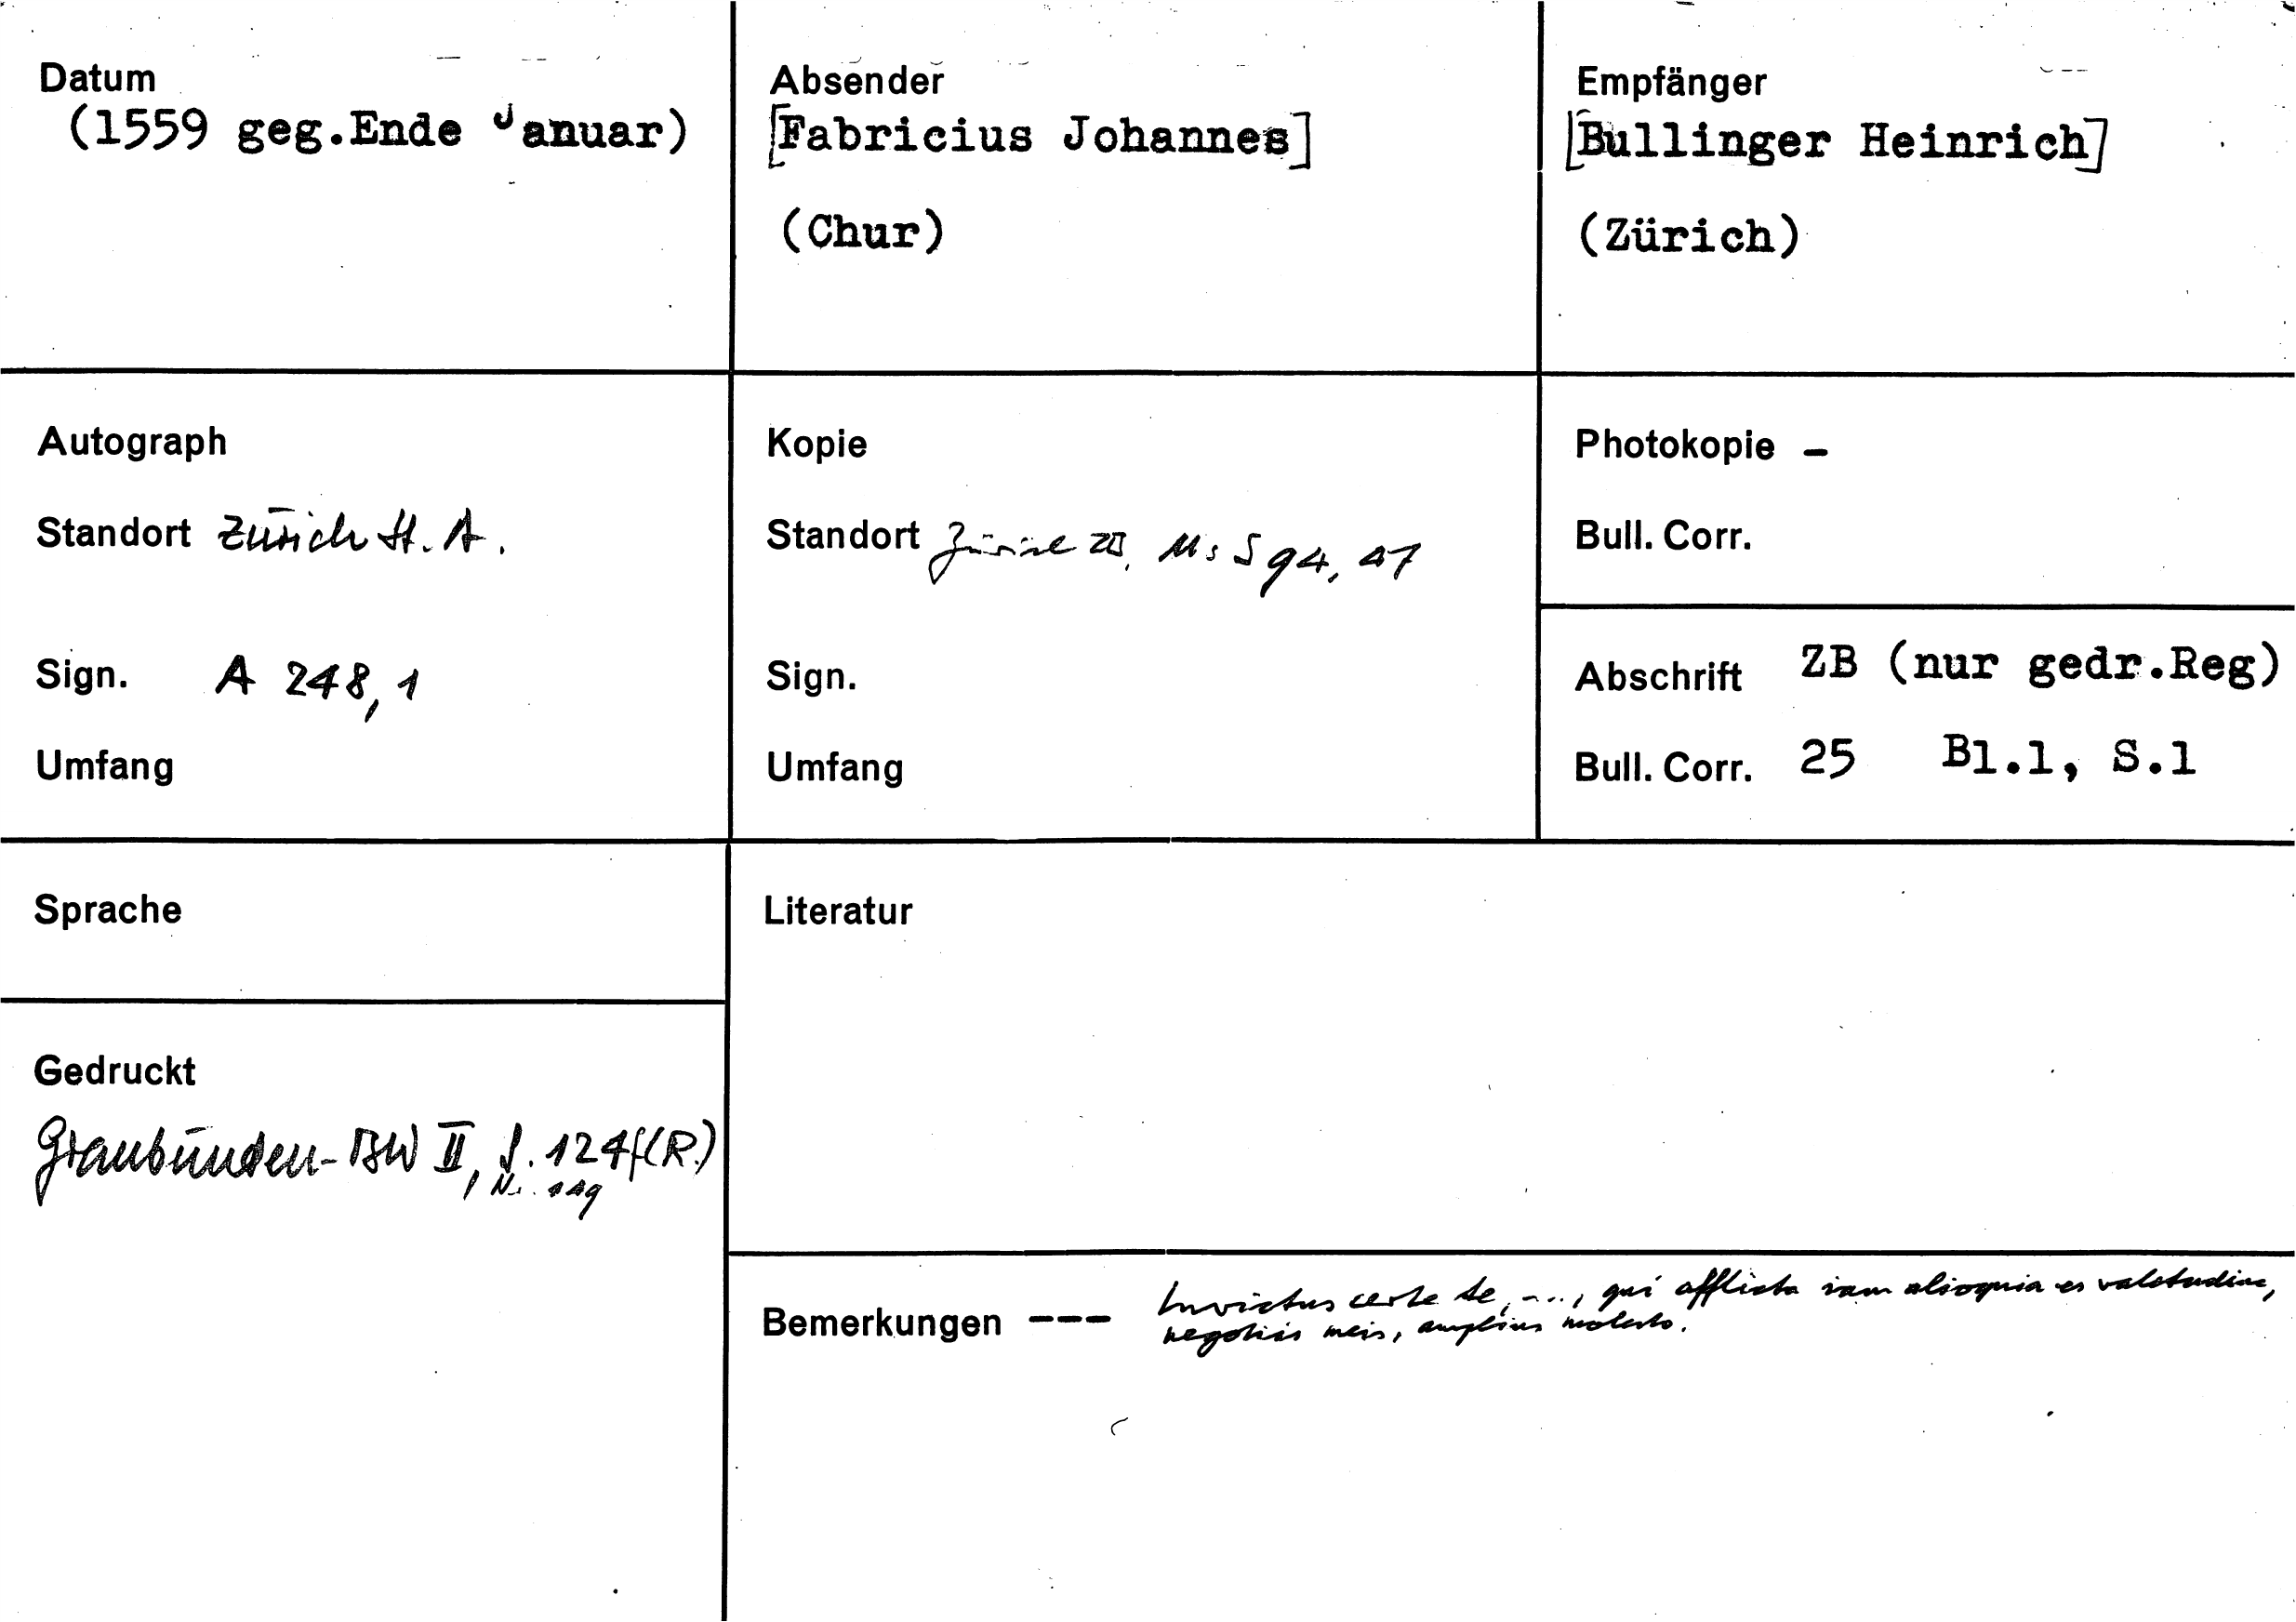 Datum
(1559 geg.Ende Januar)
Absender
[Fabricius Johannes]
(Chur)
Empfänger
[Bullinger Heinrich]
(Zürich)
Autograph
Standort Zürich St. A.
Sign. A 248, 1
Umfang
Kopie
Standort Zürich ZB, Ms S 94, 47
Sign.
Umfang
Photokopie –
Bull. Corr.
Abschrift ZB (nur gedr.Reg)
Bull. Corr. 25 Bl.1, S.1
Sprache
Literatur
Gedruckt
Graubünden-BW II, S. 124f(R.)
, Nr. 149
Bemerkungen --- Invictus certe te, ..., qui afflicta iam alioquin es valetudine,
negotiis meis, amplius molesto.